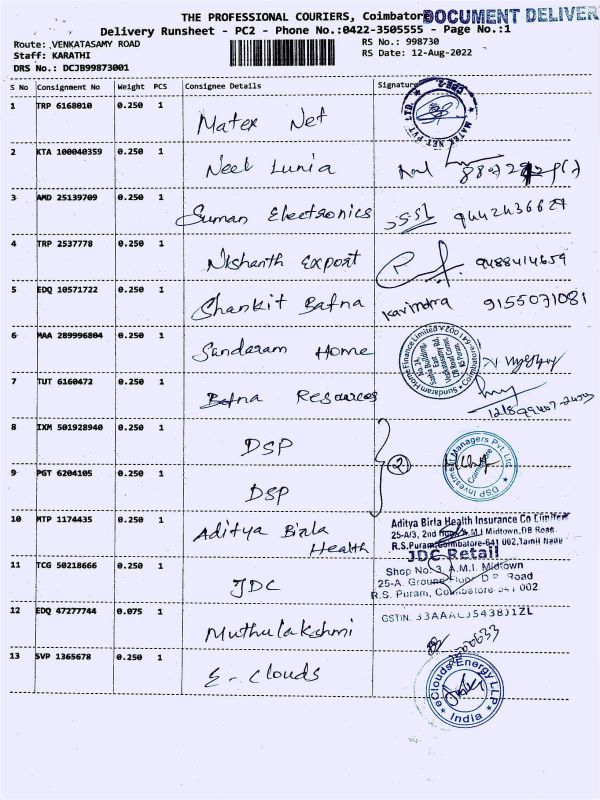 THE PROFESSIONAL COURIERS, Coimbatore
DOCUMENT DELIVER
Delivery Runsheet - PC2 - Phone No.:0422-3505555 - Page No.:1
Route: VENKATASAMY ROAD
RS No.: 998730
Staff: KARATHI
RS Date: 12-Aug-2022
DRS No.: DCJB99873001
S No Consignment No Weight PCS Consignee Details Signature
1 TRP 6168010 0.250 1 Matex Net
MATEX NET PVT LTD
2 KTA 100040359 0.250 1 Neel Lunia
3 AMD 25139709 0.250 1 Suman Electronics 9442436627
4 TRP 2537778 0.250 1 Nishanth Export 9488414659
5 EDQ 10571722 0.250 1 Shankit Bafna Kavindra 9155071081
6 MAA 289996804 0.250 1 Sundaram Home
Sundaram Home Finance Limited Coimbatore-641 002
7 TUT 6160472 0.250 1 Bafna Resources
8 IXM 501928940 0.250 1 DSP
2
DSP Investment Managers Pvt. Ltd
Coimbatore
9 PGT 6204105 0.250 1 DSP
10 MTP 1174435 0.250 1 Aditya Birla Health
Aditya Birla Health Insurance Co Limited
25-A/3, 2nd A.M.I Midtown, DB Road,
R.S. Puram, Coimbatore-641 002, Tamil Nadu
11 TCG 50218666 0.250 1 JDC
JDC Retail
Shop No: 3, A.M.I. Midtown
25-A, Ground Floor D.B. Road
R.S. Puram, Coimbatore 002.
GSTIN.
12 EDQ 47277744 0.075 1 Muthulakshmi
13 SVP 1365678 0.250 1 E-Clouds
eClouds Energy LLP
India